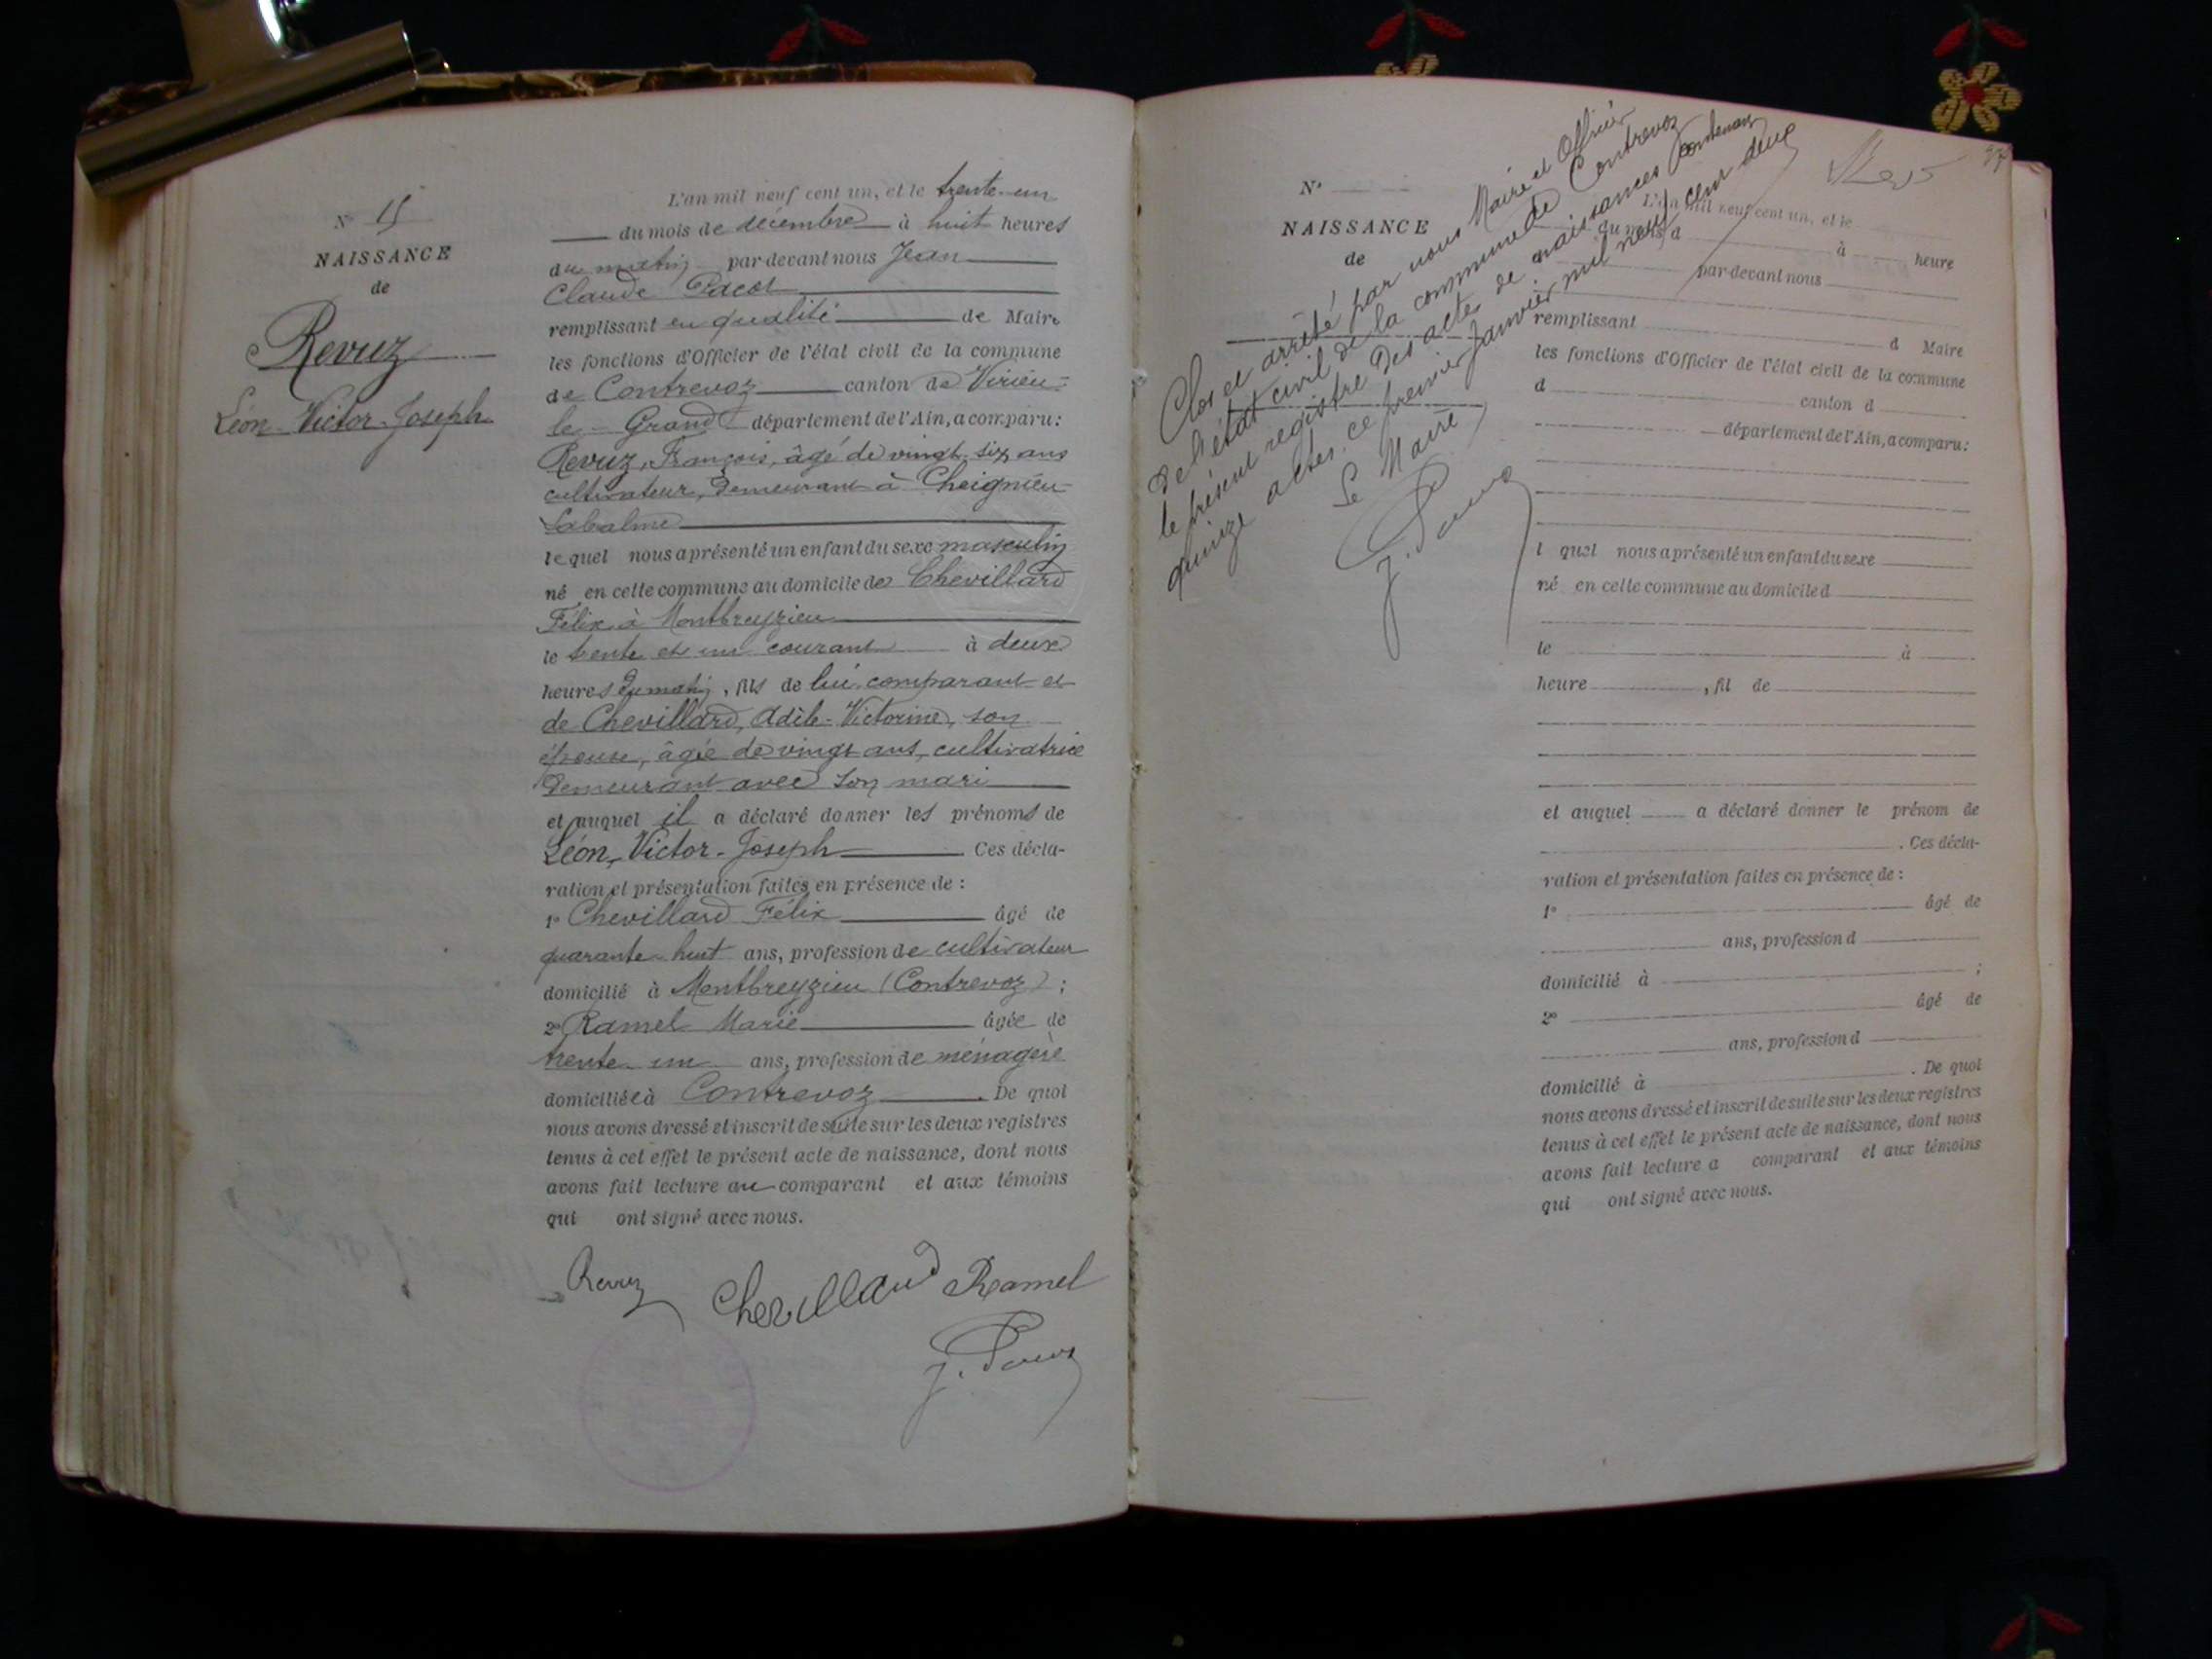 N° 15
NAISSANCE
de
Revuz
Léon-Victor-Joseph
L'an mil neuf cent un, et le trente-un
du mois de décembre à huit heures
du matin par-devant nous Jean
Claude Pacot
remplissant en qualité de Maire
les fonctions d'Officier de l'état civil de la commune
de Contrevoz canton de Virieu-
le-Grand département de l'Ain, a comparu:
Revuz, François, âgé de vingt-six ans
cultivateur, demeurant à Cheignieu-
Labalme
lequel nous a présenté un enfant du sexe masculin
né en cette commune au domicile de Chevillard
Félix à Montbreyzieu
le trente et un courant à deux
heures du matin, fils de lui, comparant et
de Chevillard, Adèle-Victorine, son
épouse, âgée de vingt ans, cultivatrice
demeurant avec son mari
et auquel il a déclaré donner les prénoms de
Léon-Victor-Joseph. Ces décla-
ration et présentation faites en présence de :
1° Chevillard Félix âgé de
quarante-huit ans, profession de cultivateur
domicilié à Montbreyzieu (Contrevoz) ;
2° Ramel Marie âgée de
trente-un ans, profession de ménagère
domiciliée à Contrevoz. De quoi
nous avons dressé et inscrit de suite sur les deux registres
tenus à cet effet le présent acte de naissance, dont nous
avons fait lecture au comparant et aux témoins
qui ont signé avec nous.
Revuz Chevillard Ramel
37
N°
NAISSANCE
de
Clos et arrêté par nous Maire et Officier
de l'état civil de la commune de Contrevoz
le présent registre des actes de naissances contenant
quinze actes, ce premier Janvier mil neuf cent deux
Le Maire
L'an mil neuf cent un, et le
du mois d à heure
par-devant nous
remplissant d Maire
les fonctions d'Officier de l'état civil de la commune
d canton d
département de l'Ain, a comparu:
l quel nous a présenté un enfant du sexe
né en cette commune au domicile d
le à
heure , fil de
et auquel a déclaré donner le prénom de
. Ces décla-
ration et présentation faites en présence de :
1° âgé de
ans, profession d
domicilié à ;
2° âgé de
ans, profession d
domicilié à . De quoi
nous avons dressé et inscrit de suite sur les deux registres
tenus à cet effet le présent acte de naissance, dont nous
avons fait lecture a comparant et aux témoins
qui ont signé avec nous.